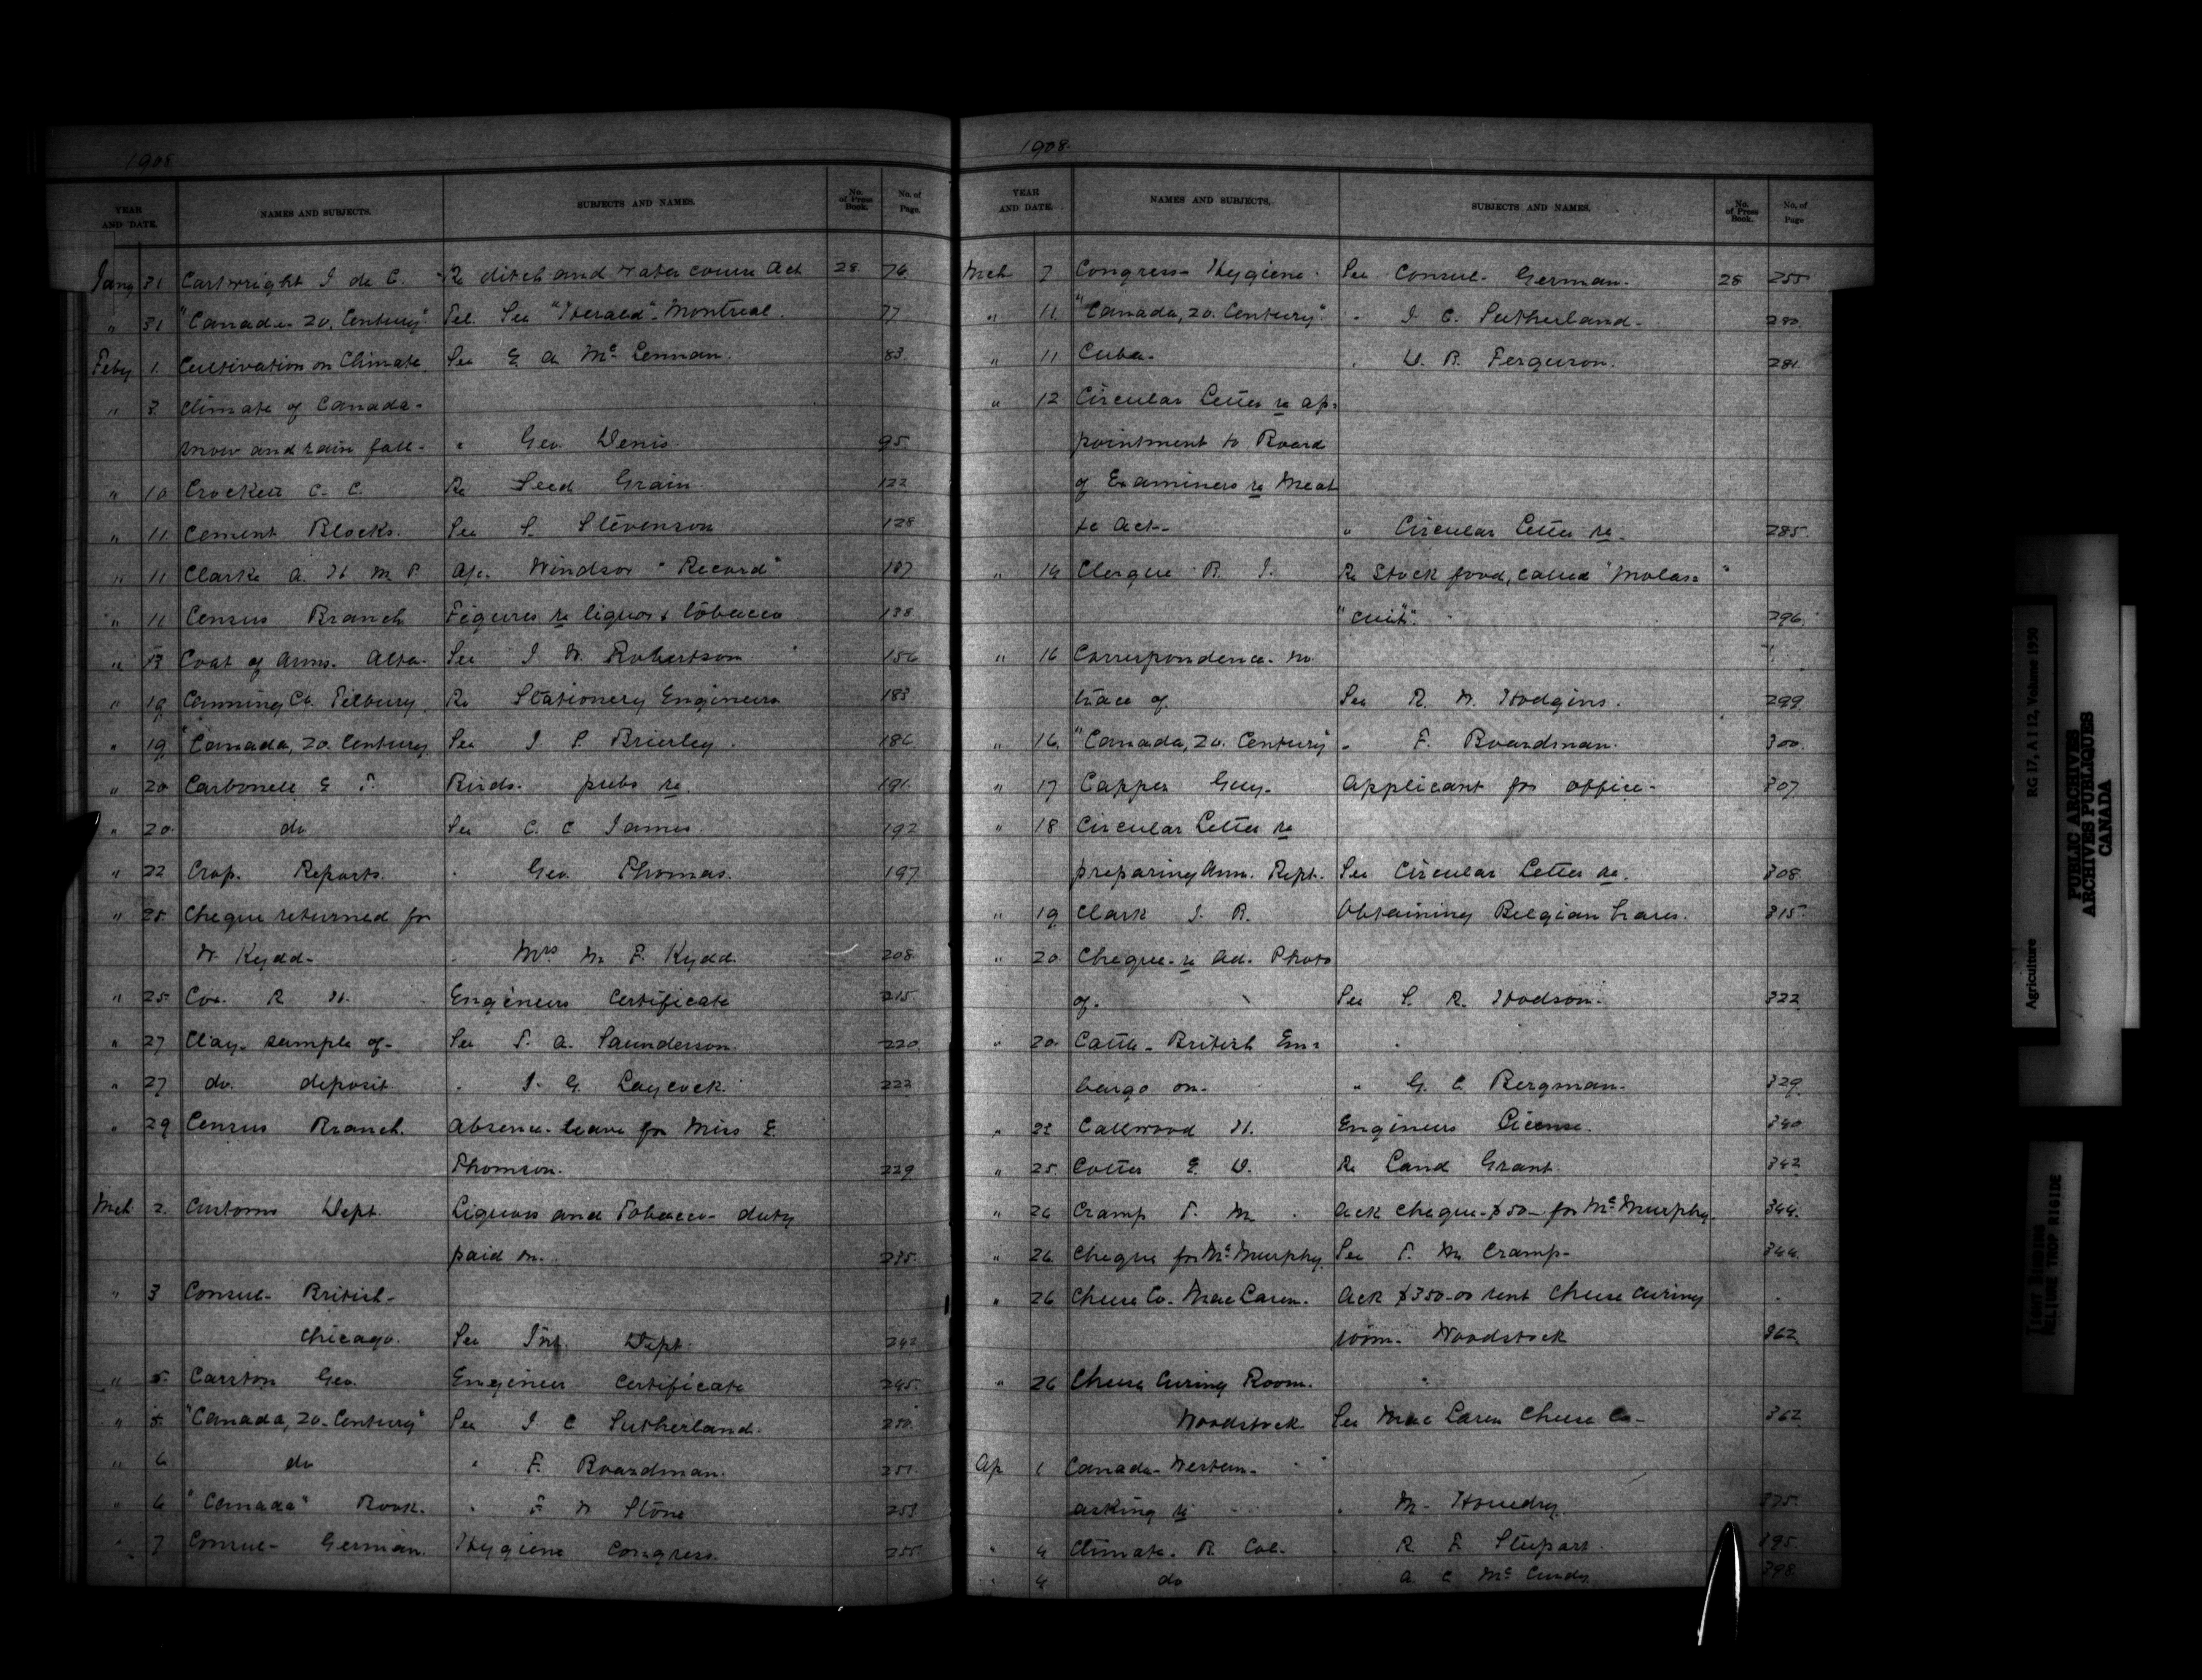 1908
YEAR AND DATE. NAMES AND SUBJECTS. SUBJECTS AND NAMES. No. of Press Book. No. of Page.
Jany 31 Cartwright J. de C. Re ditch and water course Act 28. 76
" 31 "Canada- 20. Century" Tel. See "Herald"- Montreal. 77
Feby 1. Cultivation on Climate. See E A McLennan. 83.
" 3. Climate of Canada-
snow and rain fall- " Geo. Denis. 95
" 10 Crockett C. C. Re Seed Grain 122
" 11. Cement Blocks. See S. Stevenson 128
" 11 Clarke A. H. M. P. a/c. Windsor "Record" 137
" 11 Census Branch Figures re liquor & tobacco 138
" 13 Coat of Arms. Alta. See J. W. Robertson 156
" 19 Canning Co. Tilbury. Re Stationery Engineers 183
" 19 "Canada, 20. Century. See J P. Brierley. 186
" 20 Carbonell E T. Birds. pubs re. 191.
" 20. do See C. C James. 192
" 22 Crop. Reports. " Geo. Thomas. 197
" 25. Cheque returned for
W. Kydd- " Mrs M. F. Kydd. 208.
" 25. Cox. R H. Engineers Certificate 215
" 27 Clay- sample of- See T. A. Saunderson. 220.
" 27 do. deposit. " J. G. Laycock. 222
" 29 Census Branch. Absence- leave for Miss E.
Thomson. 229
Mch 2. Customs Dept. Liquors and Tobacco- duty
paid on. 235.
" 3 Consul- British-
Chicago. See Int. Dept. 242
" 5. Carston Geo. Engineer Certificate 245.
" 5. "Canada, 20. Century" See J C Sutherland. 250.
" 6 do " F. Boardman. 251.
" 6 "Canada" Book. " F W Stone 253
" 7 Consul- German. Hygiene Congress. 255
1908.
YEAR AND DATE. NAMES AND SUBJECTS. SUBJECTS AND NAMES. No. of Press Book. No. of Page
Mch 7 Congress- Hygiene. See Consul- German. 28 255
" 11. "Canada, 20. Century". " J C. Sutherland. 280.
" 11 Cuba- " D. B. Ferguson. 281.
" 12 Circular Letter re ap=
pointment to Board
of Examiners re Meat
&c Act- " Circular Letter re. 285.
" 14 Clergue B. J. Re Stock food, called "Molas= "
"cuit". 296.
" 16 Correspondence- no
trace of. See R. W. Hodgins. 299.
" 16. "Canada, 20. Century" " F. Boardman. 300.
" 17 Capper Guy- Applicant for office- 307
" 18 Circular Letter re
preparing Ann. Rept. See Circular Letter re. 308.
" 19 Clark J. R. Obtaining Belgian hares. 315
" 20. Cheque- re Ad. Photo
of. See S. R. Hodson. 322
" 20. Cattle- British Em=
bargo on- " G. C. Bergman. 329.
" 23 Callwood H. Engineers License. 340.
" 25. Cotter E. D. Re Land Grant. 342
" 26 Cramp T. M. Ack cheque- $50- for McMurphy. 344.
" 26 Cheque for McMurphy. See T. M. Cramp- 344.
" 26 Cheese Co. MacLaren. Ack $350-00 rent Cheese Curing
room- Woodstock 362.
" 26 Cheese Curing Room.
Woodstock See MacLaren Cheese Co- 362
Ap 1 Canada- Western-
asking re " M- 375.
" 4 Climate- B. Col. " R. F. Stupart. 395.
" 4 do " A. C McCurdy. 398.
Agriculture RG 17, A I 12, Volume 1950
PUBLIC ARCHIVES
ARCHIVES PUBLIQUES
CANADA
TIGHT BINDING
RELIURE TROP RIGIDE